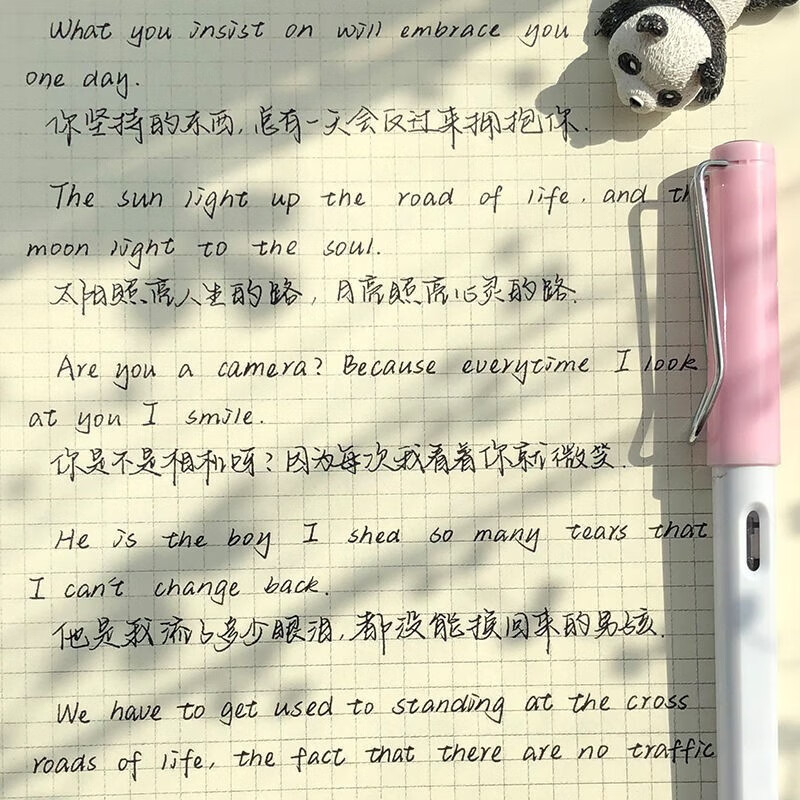 What you insist on will embrace you
one day.
你坚持的东西,总有一天会反过来拥抱你.
The sun light up the road of life, and th
moon light to the soul.
太阳照亮人生的路,月亮照亮心灵的路.
Are you a camera? Because everytime I look
at you I smile.
你是不是相机呀?因为每次我看着你就微笑.
He is the boy I shed so many tears that
I can't change back.
他是我流了多少眼泪,都没能换回来的男孩.
We have to get used to standing at the cross
roads of life, the fact that there are no traffic